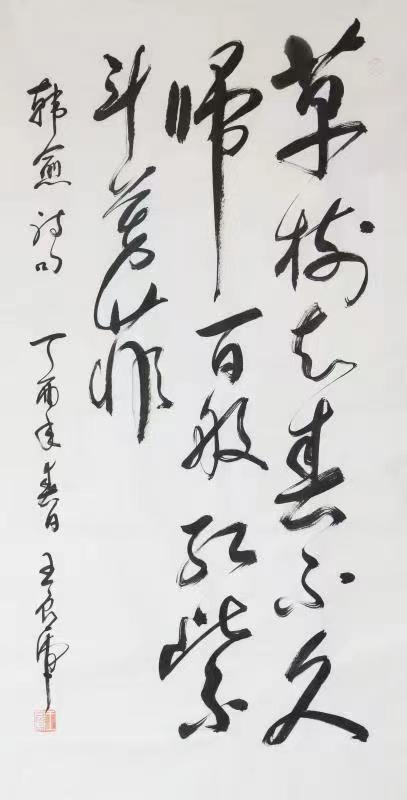 草树知春不久
归百般红紫
斗芳菲
韩愈诗句 丁酉年春日 王良虎